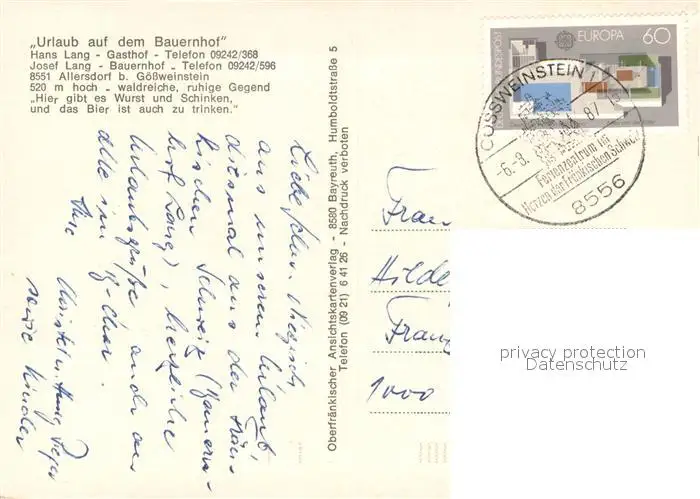 „Urlaub auf dem Bauernhof"
Hans Lang - Gasthof - Telefon 09242/368
Josef Lang - Bauernhof - Telefon 09242/596
8551 Allersdorf b. Gößweinstein
520 m hoch - waldreiche, ruhige Gegend
„Hier gibt es Wurst und Schinken,
und das Bier ist auch zu trinken."
Oberfränkischer Ansichtskartenverlag - 8580 Bayreuth, Humboldtstraße 5
Telefon (09 21) 6 41 26 - Nachdruck verboten
Liebe
aus unserem Urlaub,
diesmal aus der Frän-
kischen Schweiz (Bauern-
hof Lang), herzliche
Urlaubsgrüße auch an
alle im
Ihre
sowie Kinder
DEUTSCHE BUNDESPOST
EUROPA 60
GÖSSWEINSTEIN 1
-6.-8. 87
Ferienzentrum im
Herzen der Fränkischen Schweiz
8556
Frau
Hilde
Franz
1000
privacy protection
Datenschutz